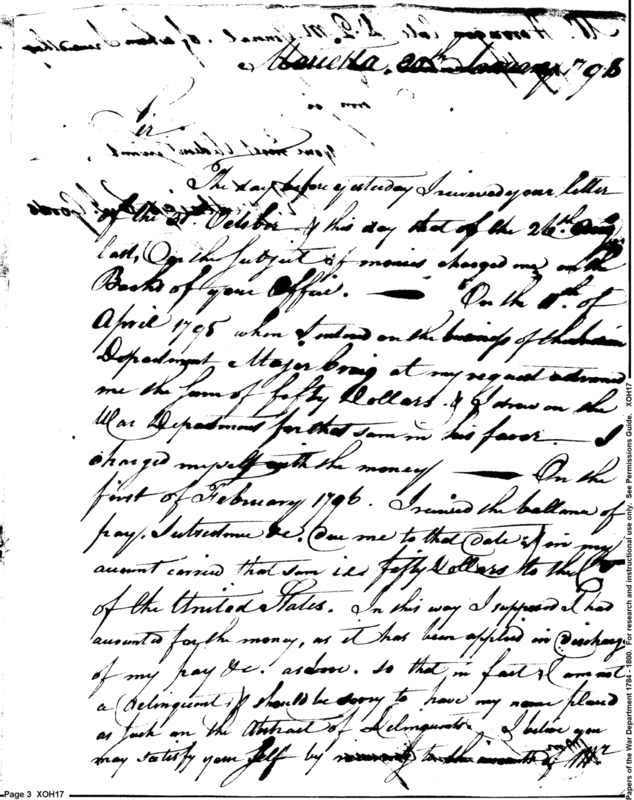 Marietta, 20th January 1798
Sir
The day before yesterday I received your letter
of the 21st October & this day that of the 26th
last, On the subject of monies charged me on the
Books of your Office. — On the 11th of
April 1795 when I entered on the business of the Indian
Department Major Craig at my request advanced
me the Sum of fifty Dollars. & I drew on the
War Department for that sum in his favor — I
charged myself with the money — On the
first of February 1796. I received the ballance of
pay, Subsistence &c. due me to that Date & in my
account carried that sum i.e. fifty Dollars to the Cr
of the United States. In this way I supposed I had
accounted for the money, as it has been applied in discharge
of my pay &c. as above. so that in fact I am not
a delinquent & should be sorry to have my name placed
as such on the Abstract of Delinquents, I believe you
may satisfy your Self by
Page 3 XOH17
Papers of the War Department 1784 - 1800. For research and instructional use only. See Permissions Guide. XOH17